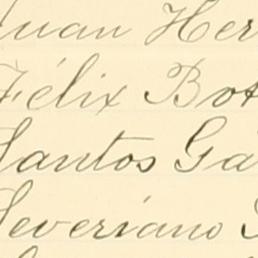 Juan Her
Félix Bot
Santos Ga
Severiano